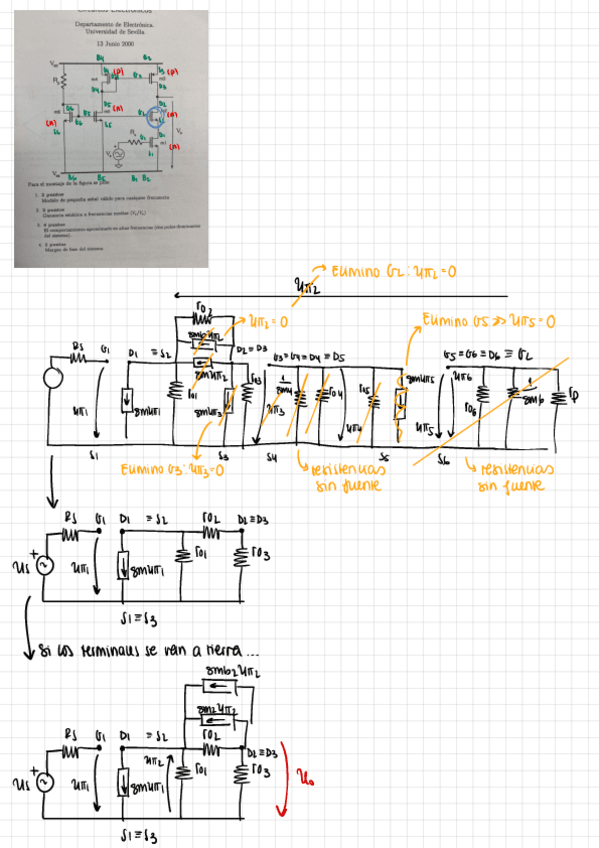 Departamento de Electrónica.
Universidad de Sevilla
13 Junio 2000
Para el montaje de la figura se pide:
1. 2 puntos
Modelo de pequeña señal válido para cualquier frecuencia
2. 2 puntos
Ganancia estática a frecuencias medias (Vo/Vs)
3. 4 puntos
El comportamiento aproximado en altas frecuencias (dos polos dominantes del sistema).
4. 2 puntos
Margen de fase del sistema
Elimino G2: uπ2=0
uπ2
ro2
uπ2=0
Elimino G5 ⇒ uπ5=0
gmb2uπ2
gm2uπ2
Rs G1 D1 ≡ S2 D2≡D3 G3=G4=D4≡D5 G5=G6≡D6≡G2
uπ1 gmuπ1 ro1 gmuπ3 ro3 uπ3 1/gm4 ro4 uπ4 ro5 gmuπ5 uπ5 uπ6 ro6 1/gm6 Rp
S1 S3 S4 S5 S6
Elimino G3: uπ3=0
resistencias
sin fuente
resistencias
sin fuente
Rs G1 D1 ≡ S2 ro2 D2≡D3
us + uπ1 gmuπ1 ro1 ro3
S1≡S3
Si los terminales se van a tierra...
gmb2uπ2
gm2uπ2
Rs G1 D1 ≡ S2 ro2 D2≡D3
us + uπ1 gmuπ1 uπ2 ro1 ro3 uo
S1≡S3